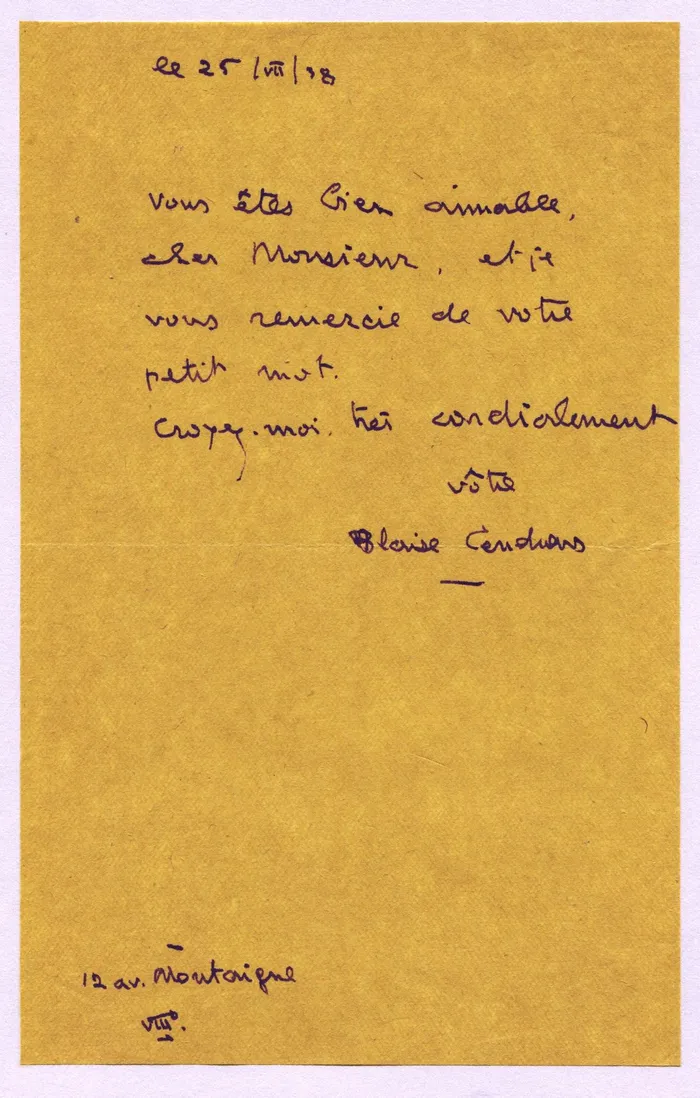 le 25/VII/38
Vous êtes bien aimable,
cher Monsieur, et je
vous remercie de votre
petit mot.
Croyez-moi très cordialement
vôtre
Blaise Cendrars
12 av. Montaigne
VIIIº.